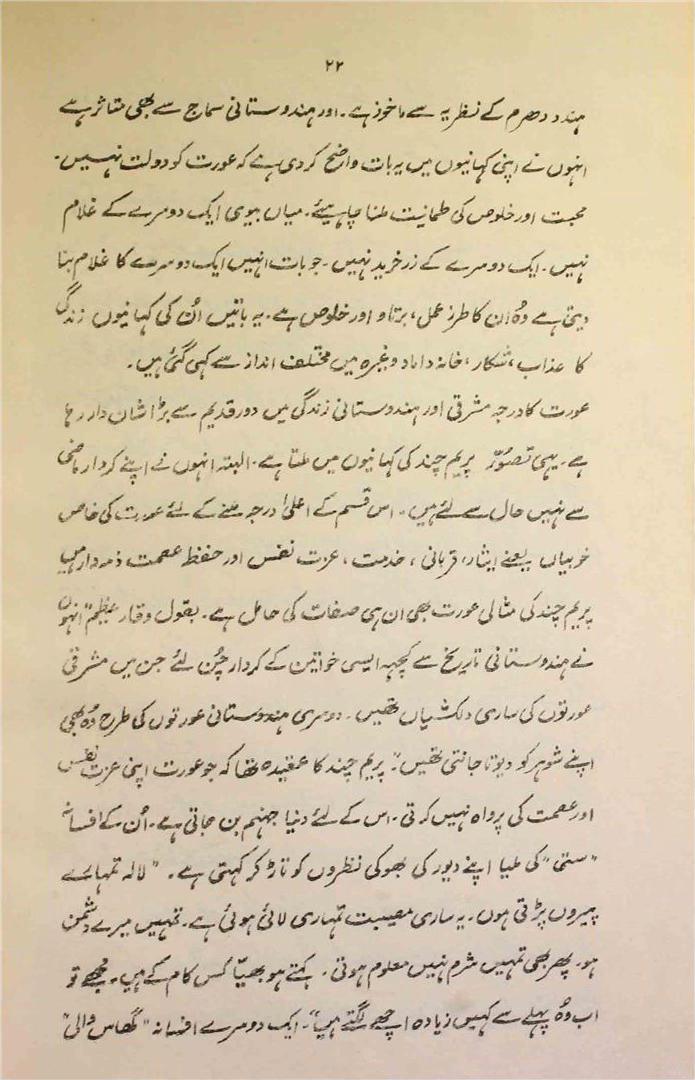 ۲۲
ہندو دھرم کے نظریہ سے ماخوذ ہے۔ اور ہندوستانی سماج سے بھی متاثر ہے
انہوں نے اپنی کہانیوں میں یہ بات واضح کر دی ہے کہ عورت کو دولت نہیں۔
محبت اور خلوص کی طمانیت ملنا چاہیئے۔ میاں بیوی ایک دوسرے کے غلام
نہیں۔ ایک دوسرے کے زر خرید نہیں۔ جو بات انہیں ایک دوسرے کا غلام بنا
دیتی ہے وہ ان کا طرز عمل، برتاو اور خلوص ہے۔ یہ باتیں اُن کی کہانیوں زندگی
کا عذاب، شکار، خانہ داماد وغیرہ میں مختلف انداز سے کہی گئی ہیں۔
عورت کا درجہ مشرقی اور ہندوستانی زندگی میں دور قدیم سے بڑا شان دار رہا
ہے۔ یہی تصوّر پریم چند کی کہانیوں میں ملتا ہے۔ البتہ انہوں نے اپنے کردار ماضی
سے نہیں حال سے لئے ہیں۔ اس قسم کے اعلیٰ درجہ ملنے کے لئے عورت کی خاص
خوبیاں یعنے ایثار، قربانی، خدمت، عزت نفس اور حفظ عصمت ذمہ دار ہیں
پریم چند کی مثالی عورت بھی ان ہی صفات کی حامل ہے۔ بقول وقار عظیم "انہوں
نے ہندوستانی تاریخ سے کچھ ایسی خواتین کے کردار چُن لئے جن میں مشرقی
عورتوں کی ساری دلکشیاں تھیں۔ دوسری ہندوستانی عورتوں کی طرح وہ بھی
اپنے شوہر کو دیوتا جانتی تھیں"۔ پریم چند کا عقیدہ تھا کہ جو عورت اپنی عزت نفس
اور عصمت کی پرواہ نہیں کرتی۔ اس کے لئے دنیا جہنم بن جاتی ہے۔ اُن کے افسانہ
"ستی" کی ملیا اپنے دیور کی بھوکی نظروں کو تاڑ کر کہتی ہے۔ "لالہ تمہارے
پیروں پڑتی ہوں۔ یہ ساری مصیبت تمہاری لائی ہوئی ہے۔ تمہیں میرے دشمن
ہو۔ پھر بھی تمہیں شرم نہیں معلوم ہوتی۔ کہتے ہو بھیّا کس کام کے ہیں۔ مجھے تو
اب وہ پہلے سے کہیں زیادہ اچھے لگتے ہیں"۔ ایک دوسرے افسانہ "گھاس والی"